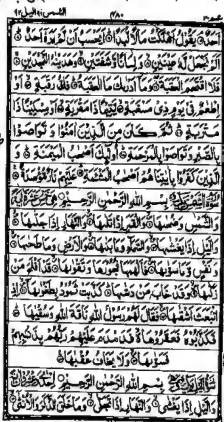 الشمس ٩١ اليل ٩٢
٤٨٠
اَحَدٌ ۞ يَقُوۡلُ اَهۡلَكۡتُ مَالًا لُّبَدًا ۞ اَيَحۡسَبُ اَنۡ لَّمۡ يَرَهٗۤ اَحَدٌ ۞
اَلَمۡ نَجۡعَلۡ لَّهٗ عَيۡنَيۡنِ ۞ وَلِسَانًا وَّشَفَتَيۡنِ ۞ وَهَدَيۡنٰهُ النَّجۡدَيۡنِ ۞
فَلَا اقۡتَحَمَ الۡعَقَبَةَ ۞ وَمَاۤ اَدۡرٰٮكَ مَا الۡعَقَبَةُ ۞ فَكُّ رَقَبَةٍ ۞ اَوۡ
اِطۡعٰمٌ فِىۡ يَوۡمٍ ذِىۡ مَسۡغَبَةٍ ۞ يَّتِيۡمًا ذَا مَقۡرَبَةٍ ۞ اَوۡ مِسۡكِيۡنًا ذَا
مَتۡرَبَةٍ ۞ ثُمَّ كَانَ مِنَ الَّذِيۡنَ اٰمَنُوۡا وَتَوَاصَوۡا
بِالصَّبۡرِ وَتَوَاصَوۡا بِالۡمَرۡحَمَةِ ۞ اُولٰٓٮِٕكَ اَصۡحٰبُ الۡمَيۡمَنَةِ ۞ وَ
الَّذِيۡنَ كَفَرُوۡا بِاٰيٰتِنَا هُمۡ اَصۡحٰبُ الۡمَشۡئَمَةِ ۞ عَلَيۡهِمۡ نَارٌ مُّؤۡصَدَةٌ ۞
بِسۡمِ اللّٰهِ الرَّحۡمٰنِ الرَّحِيۡمِ
وَالشَّمۡسِ وَضُحٰٮهَا ۞ وَالۡقَمَرِ اِذَا تَلٰٮهَا ۞ وَالنَّهَارِ اِذَا جَلّٰٮهَا ۞
وَالَّيۡلِ اِذَا يَغۡشٰٮهَا ۞ وَالسَّمَآءِ وَمَا بَنٰٮهَا ۞ وَالۡاَرۡضِ وَمَا طَحٰٮهَا ۞
وَنَفۡسٍ وَّمَا سَوّٰٮهَا ۞ فَاَلۡهَمَهَا فُجُوۡرَهَا وَتَقۡوٰٮهَا ۞ قَدۡ اَفۡلَحَ مَنۡ
زَكّٰٮهَا ۞ وَقَدۡ خَابَ مَنۡ دَسّٰٮهَا ۞ كَذَّبَتۡ ثَمُوۡدُ بِطَغۡوٰٮهَا ۞ اِذِ
انۢبَعَثَ اَشۡقٰٮهَا ۞ فَقَالَ لَهُمۡ رَسُوۡلُ اللّٰهِ نَاقَةَ اللّٰهِ وَسُقۡيٰهَا ۞
فَكَذَّبُوۡهُ فَعَقَرُوۡهَا ۞ فَدَمۡدَمَ عَلَيۡهِمۡ رَبُّهُمۡ بِذَنۡۢبِهِمۡ
فَسَوّٰٮهَا ۞ وَلَا يَخَافُ عُقۡبٰهَا ۞
بِسۡمِ اللّٰهِ الرَّحۡمٰنِ الرَّحِيۡمِ
وَالَّيۡلِ اِذَا يَغۡشٰى ۞ وَالنَّهَارِ اِذَا تَجَلّٰى ۞ وَمَا خَلَقَ الذَّكَرَ وَالۡاُنۡثٰٓى ۞